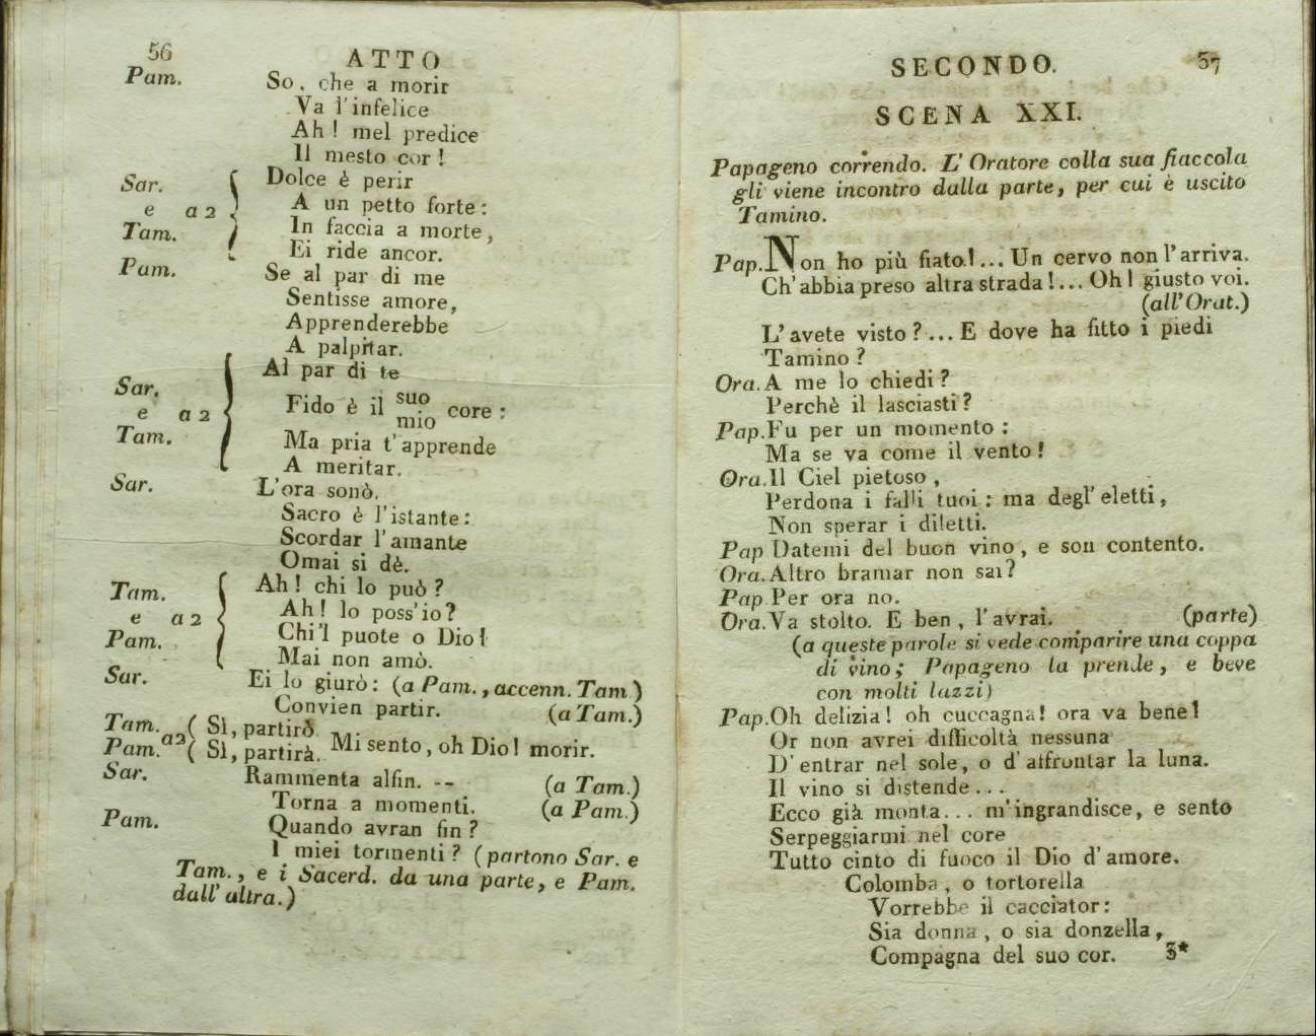 56
ATTO
Pam. So, che a morir
Va l'infelice
Ah! mel predice
Il mesto cor!
Sar. Dolce è perir
e a 2 A un petto forte:
Tam. In faccia a morte,
Ei ride ancor.
Pam. Se al par di me
Sentisse amore,
Apprenderebbe
A palpitar.
Al par di te
Sar. Fido è il suo core:
e a 2 mio
Tam. Ma pria t'apprende
A meritar.
Sar. L'ora sonò,
Sacro è l'istante:
Scordar l'amante
Omai si dè.
Tam. Ah! chi lo può?
e a 2 Ah! lo poss'io?
Pam. Chi'l puote o Dio!
Mai non amò.
Sar. Ei lo giurò: (a Pam., accenn. Tam)
Convien partir. (a Tam.)
Tam. a2 ( Sì, partirò
Pam. ( Sì, partirà. Mi sento, oh Dio! morir.
Sar. Rammenta alfin. -- (a Tam.)
Torna a momenti. (a Pam.)
Pam. Quando avran fin?
I miei tormenti? (partono Sar. e
Tam., e i Sacerd. da una parte, e Pam.
dall'altra.)
SECONDO. 57
SCENA XXI.
Papageno correndo. L'Oratore colla sua fiaccola
gli viene incontro dalla parte, per cui è uscito
Tamino.
Pap. Non ho più fiato!... Un cervo non l'arriva.
Ch'abbia preso altra strada!... Oh! giusto voi.
(all'Orat.)
L'avete visto?... E dove ha fitto i piedi
Tamino?
Ora. A me lo chiedi?
Perchè il lasciasti?
Pap. Fu per un momento:
Ma se va come il vento!
Ora. Il Ciel pietoso,
Perdona i falli tuoi: ma degl'eletti,
Non sperar i diletti.
Pap Datemi del buon vino, e son contento.
Ora. Altro bramar non sai?
Pap Per ora no.
Ora. Va stolto. E ben, l'avrai. (parte)
(a queste parole si vede comparire una coppa
di vino; Papageno la prende, e beve
con molti lazzi)
Pap. Oh delizia! oh cuccagna! ora va bene!
Or non avrei difficoltà nessuna
D'entrar nel sole, o d'affrontar la luna.
Il vino si distende...
Ecco già monta... m'ingrandisce, e sento
Serpeggiarmi nel core
Tutto cinto di fuoco il Dio d'amore.
Colomba, o tortorella
Vorrebbe il cacciator:
Sia donna, o sia donzella,
Compagna del suo cor. 3*